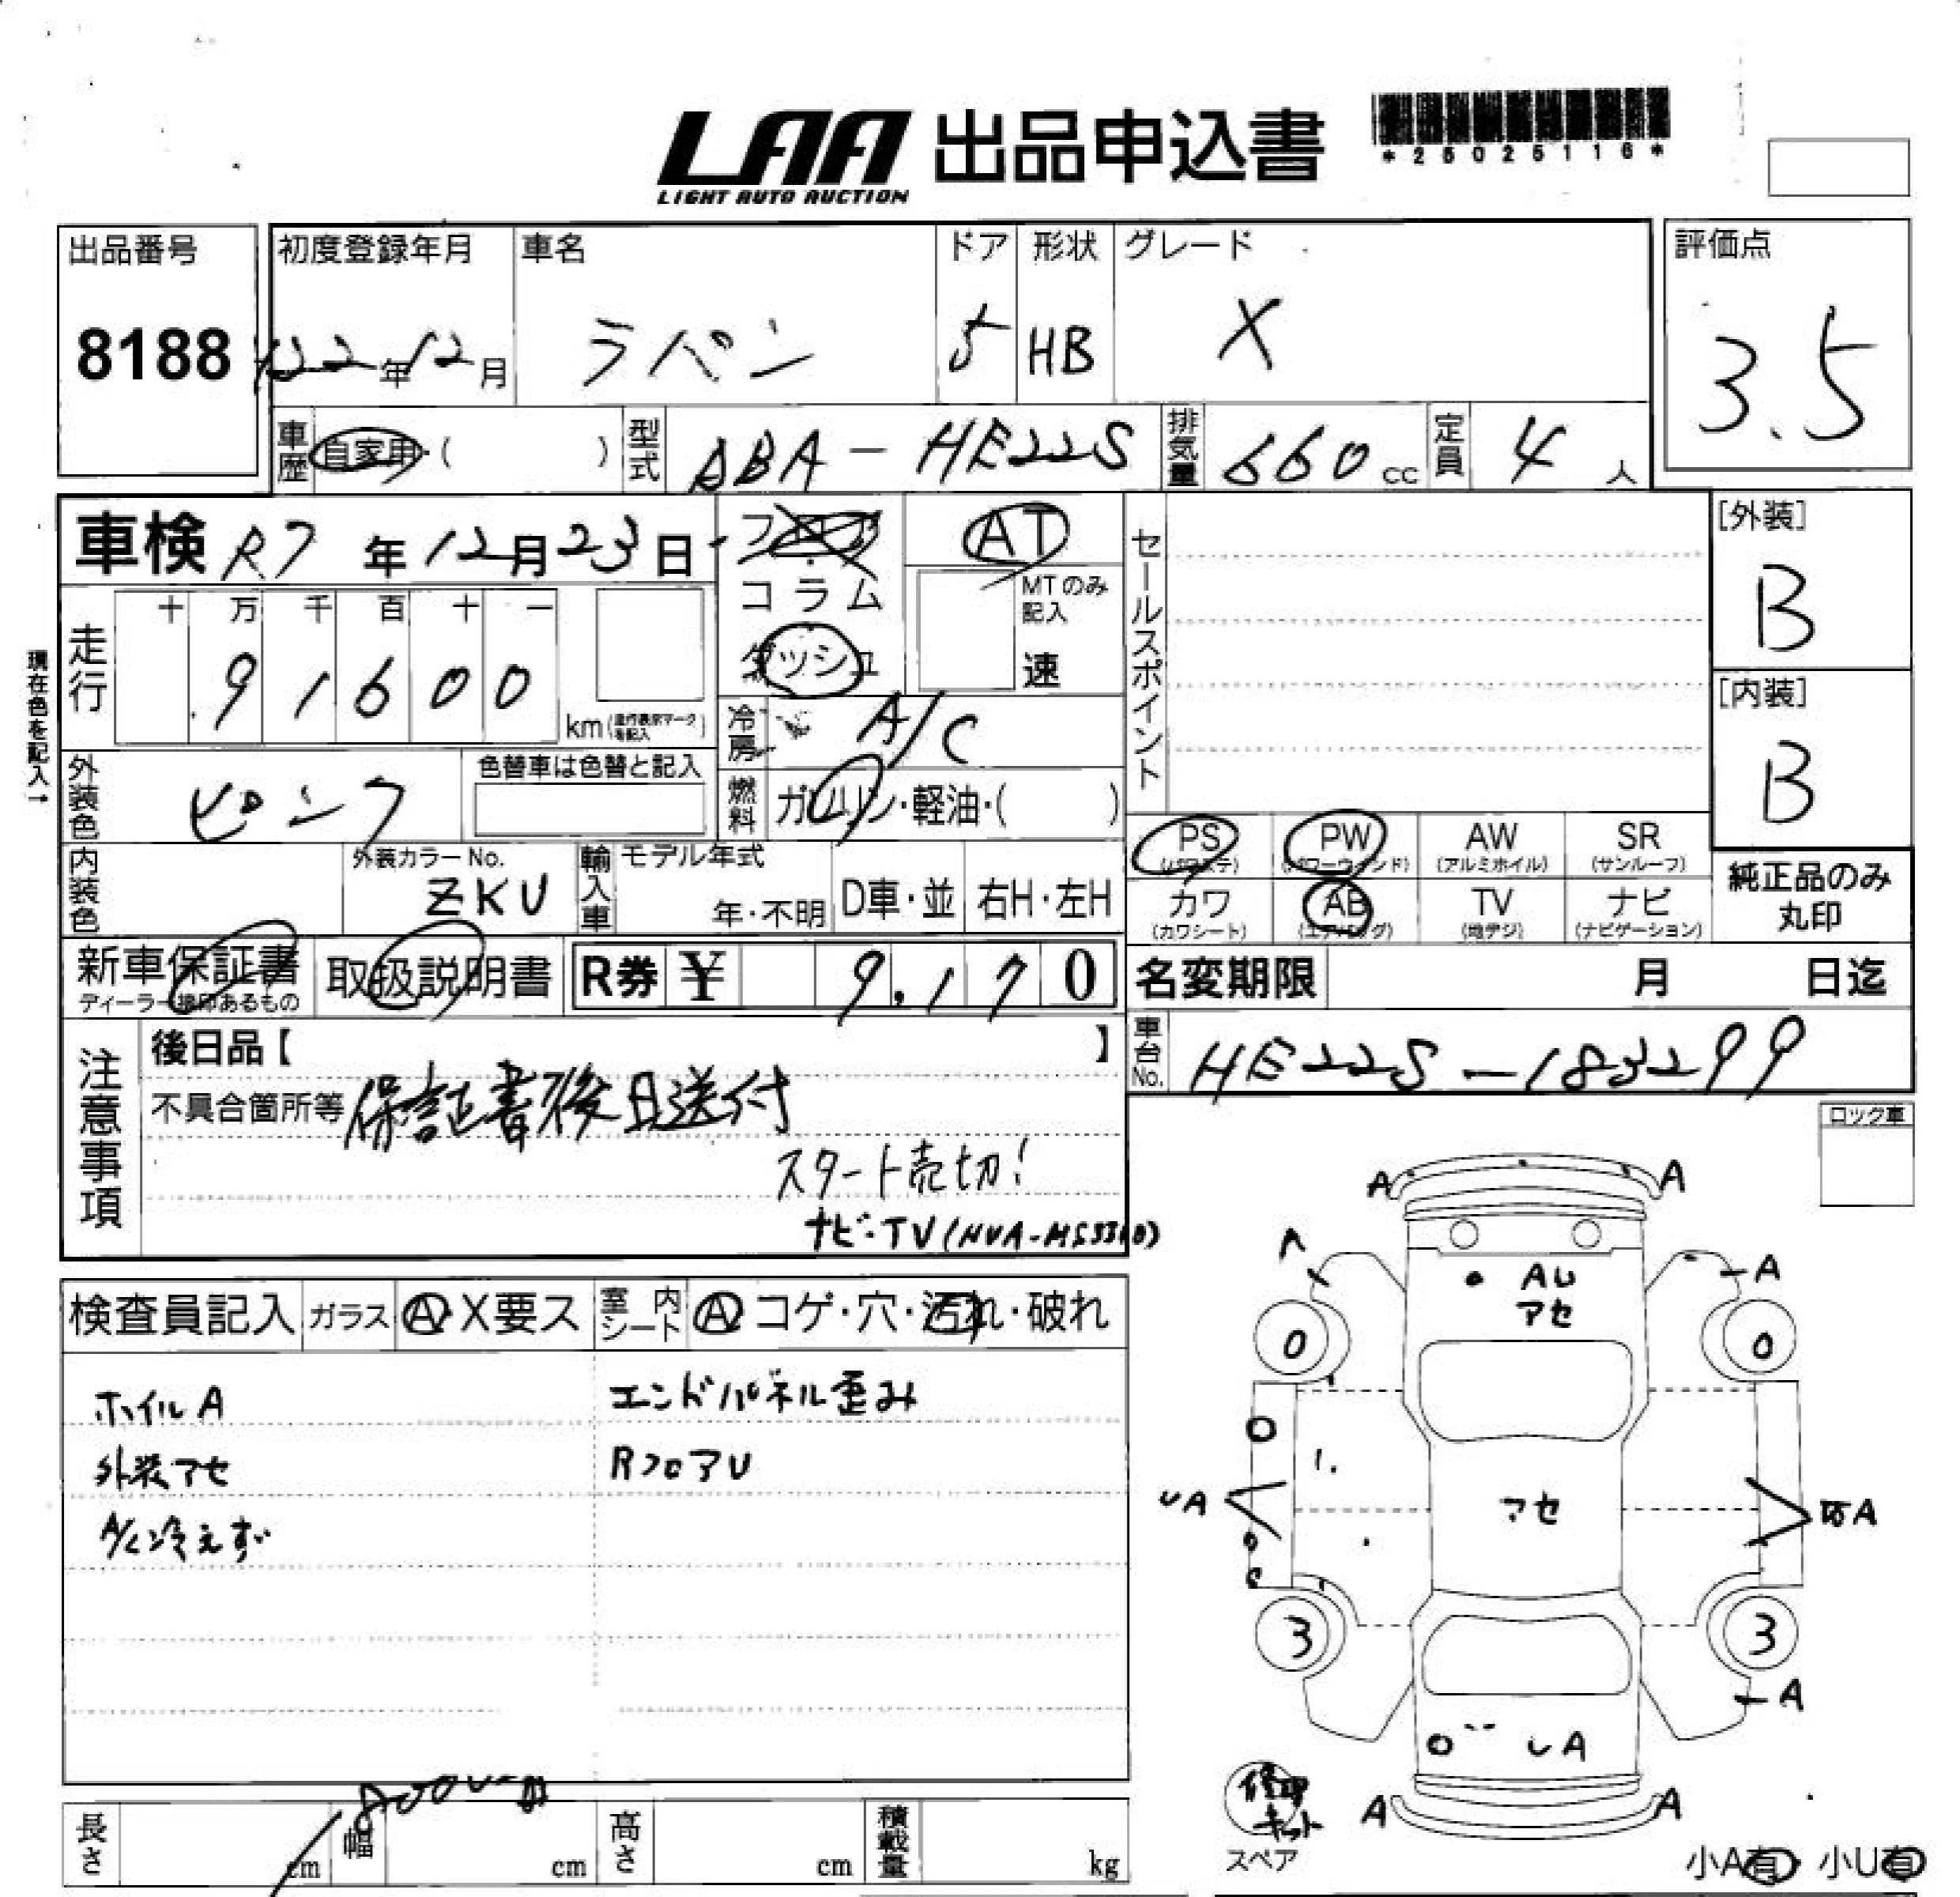 LAA 出品申込書
LIGHT AUTO AUCTION
*25025116*
出品番号 初度登録年月 車名 ドア 形状 グレード 評価点
8188 H22年12月 ラパン 5 HB X 3.5
車歴 自家用・( ) 型式 ABA-HE22S 排気量 660cc 定員 4人
車検 R7年12月23日 フロア AT セールスポイント [外装]
コラム MTのみ記入 B
ダッシュ 速
走行 十 万 千 百 十 一
91600 km(走行表示マークを記入) [内装]
現在色を記入→
冷房 A/C B
外装色 ピンク 色替車は色替と記入 燃料 ガソリン・軽油・( )
PS PW AW SR
(パワステ) (パワーウィンド) (アルミホイル) (サンルーフ)
内装色 外装カラーNo. ZKU 輸入車 モデル年式 年・不明 D車・並 右H・左H
カワ AB TV ナビ 純正品のみ丸印
(カワシート) (エアバッグ) (地デジ) (ナビゲーション)
新車保証書 取扱説明書 R券 ¥ 9,170 名変期限 月 日迄
ディーラー捺印あるもの
注意事項 後日品【 】 車台No. HE22S-183299
不具合箇所等 保証書後日送付
スタート売切!
ナビ・TV(NVA-MS3310)
ロック車
検査員記入 ガラス A・X要ス 室内シート A コゲ・穴・汚れ・破れ
ホイルA エンドパネル歪み
外装アセ RフロアU
A/C冷えず
A A
A A
AU
アセ
0 0
UA アセ A
3 3
A
UA
A A
修理キット
スペア
小A有・小U有
長さ cm 幅 cm 高さ cm 積載量 kg